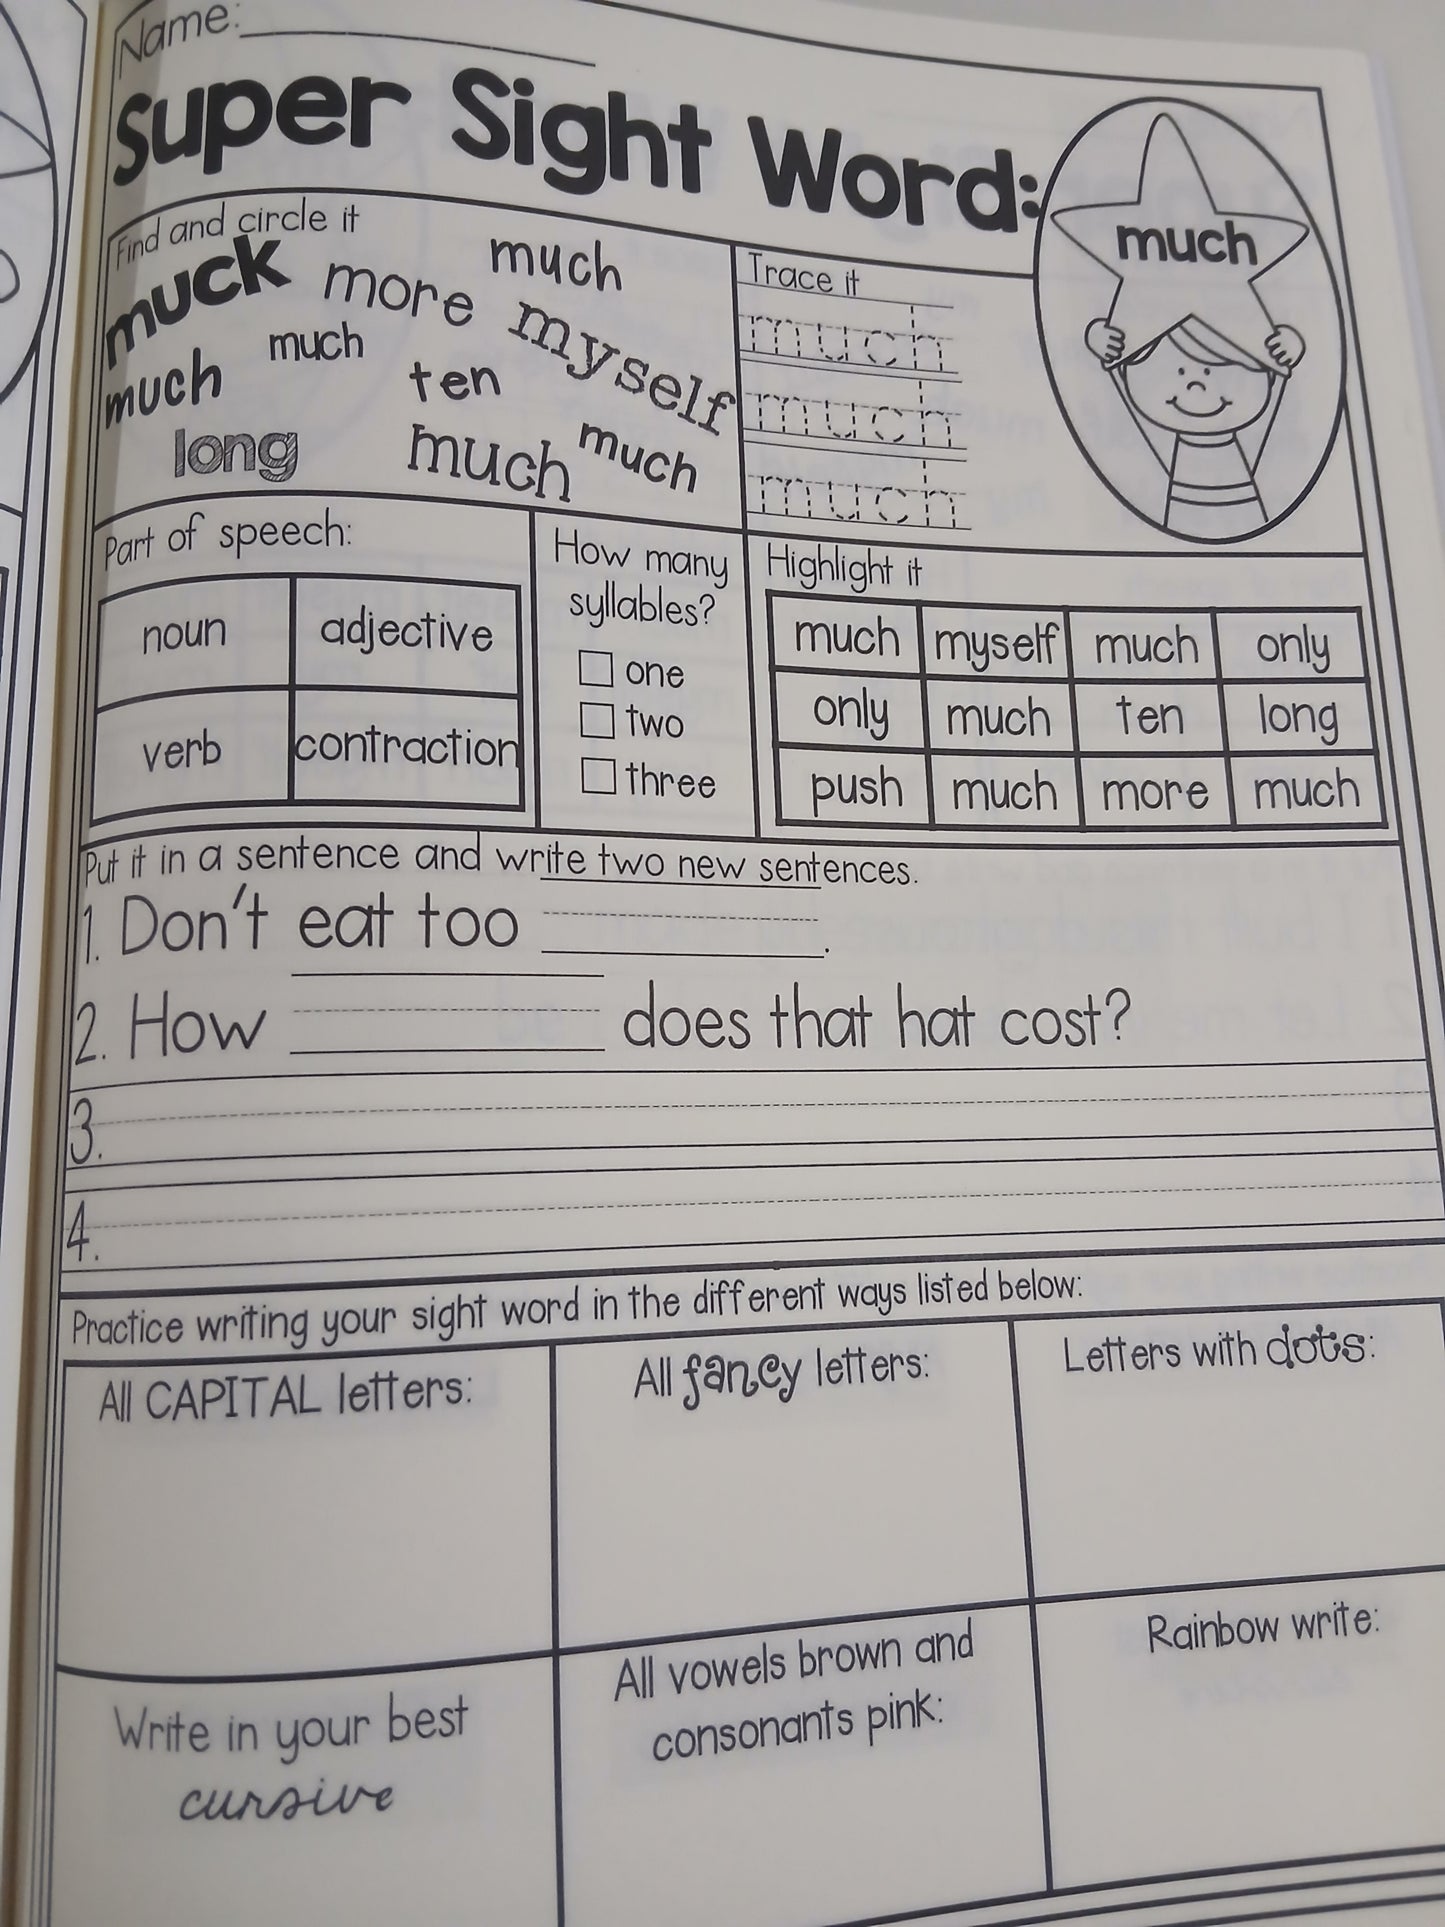 Name:
Super Sight Word:
much
Find and circle it
muck
more
much
myself
much
much
ten
long
much
much
Trace it
much
much
much
Part of speech:
noun adjective
verb contraction
How many
syllables?
one
two
three
Highlight it
much myself much only
only much ten long
push much more much
Put it in a sentence and write two new sentences.
1. Don't eat too .
2. How does that hat cost?
3.
4.
Practice writing your sight word in the different ways listed below:
All CAPITAL letters:
All fancy letters:
Letters with dots:
Write in your best
cursive
All vowels brown and
consonants pink:
Rainbow write: